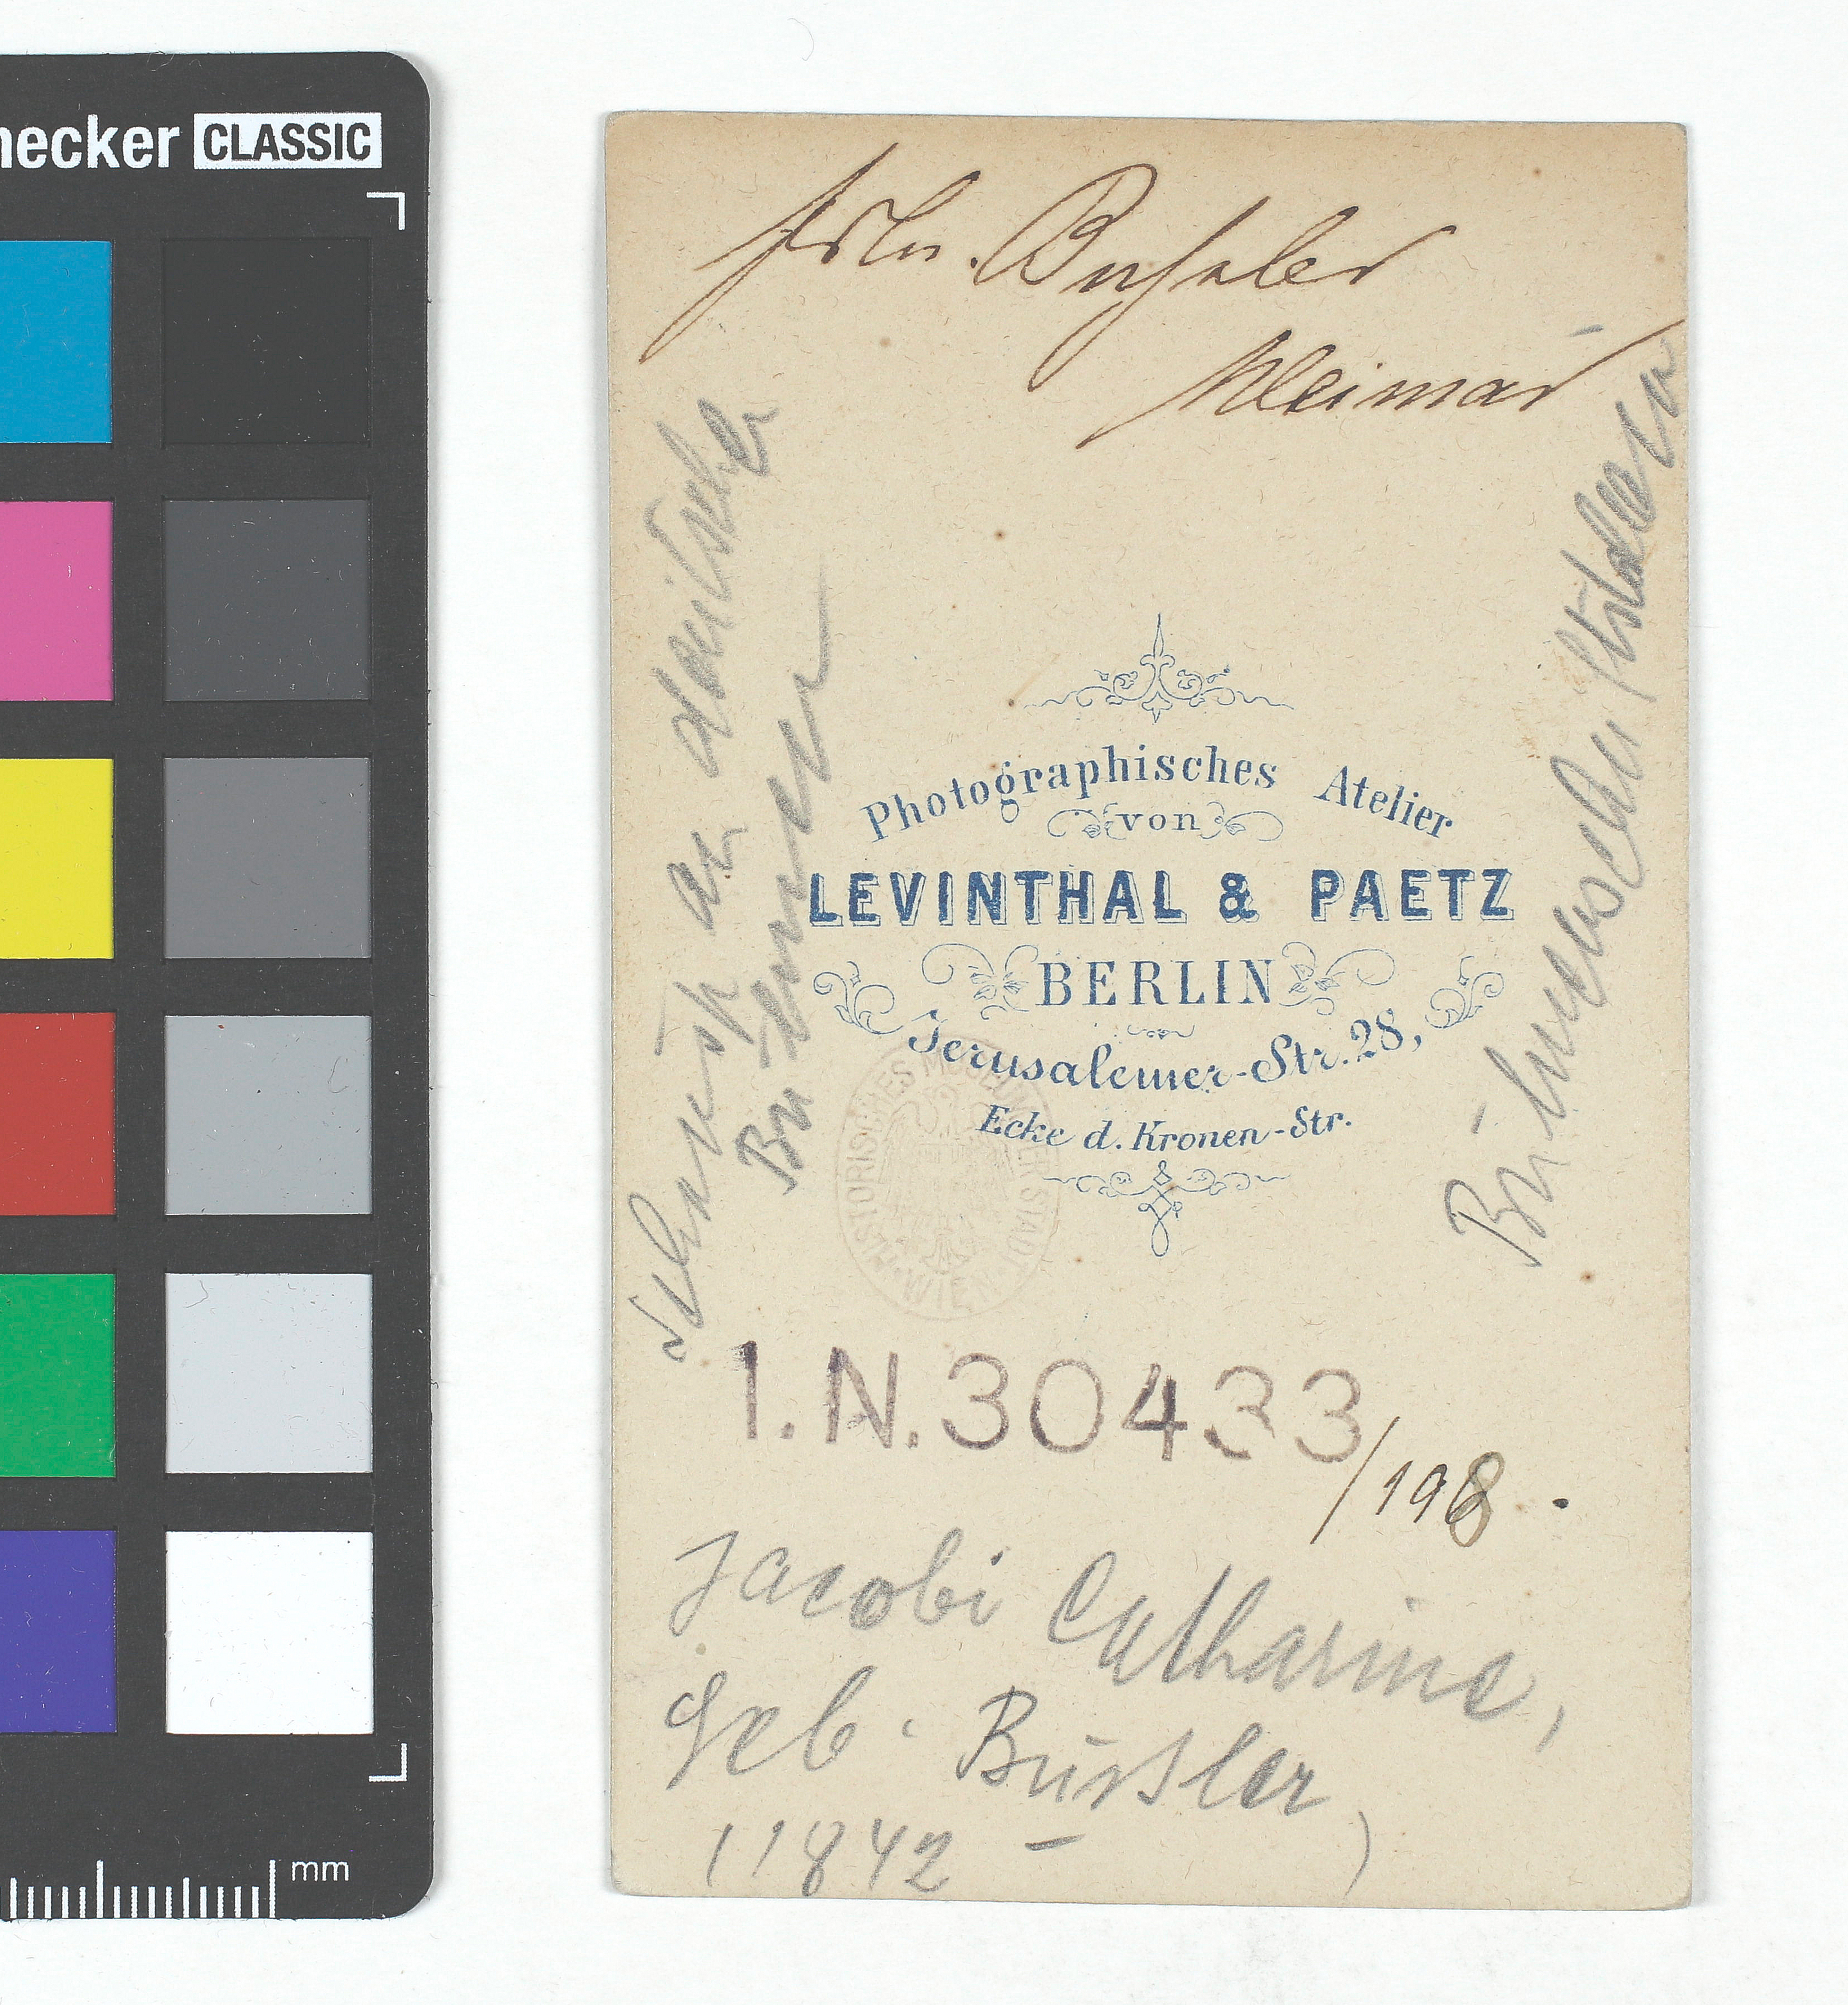 necker CLASSIC
Frln. Bußler
Weimar
Schausp an deutschen
Bühnen
Photographisches Atelier
von
LEVINTHAL & PAETZ
BERLIN
Jerusalemer-Str. 28,
Ecke d. Kronen-Str.
HISTORISCHES MUSEUM DER STADT WIEN
I.N. 30433
/198.
Jacobi Catharine,
Geb. Bussler
(1842 - )
mm